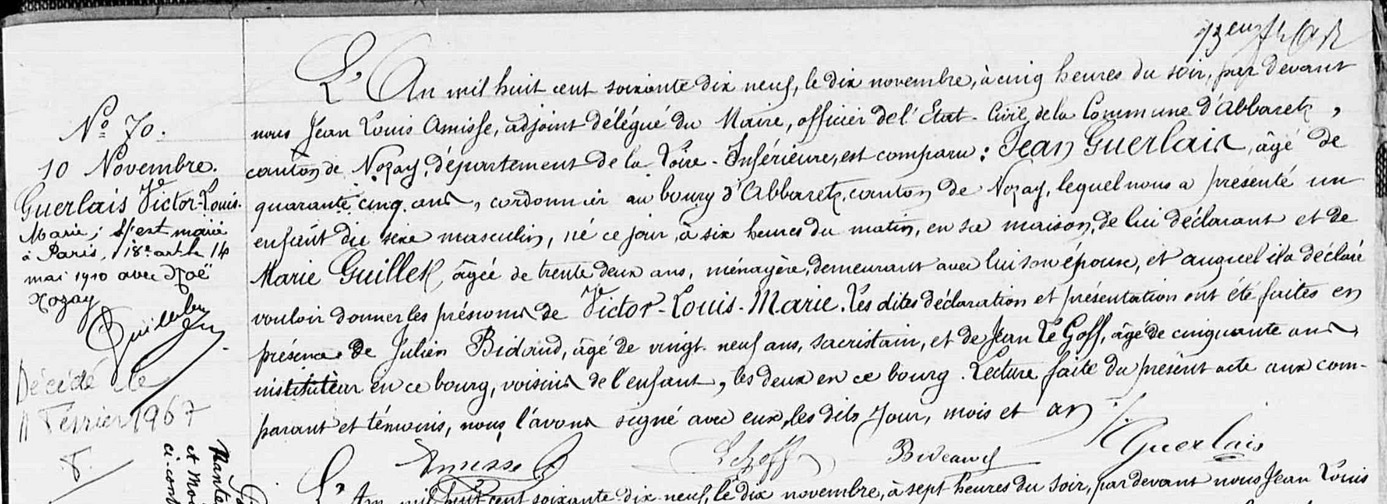 No 70.
10 Novembre.
Guerlais Victor-Louis-
Marie; s'est marié
à Paris, 18e arrt. le 14
mai 1910 avec Noë
Décédé le
11 Février 1967
L'An mil huit cent soixante dix neuf, le dix novembre, à cinq heures du soir, par devant
nous Jean Louis Amisse, adjoint délégué du Maire, officier de l'Etat-Civil de la Commune d'Abbaretz,
canton de Nozay, département de la Loire-Inférieure, est comparu: Jean Guerlais, âgé de
quarante cinq ans, cordonnier au bourg d'Abbaretz, canton de Nozay, lequel nous a présenté un
enfant du sexe masculin, né ce jour, à six heures du matin, en sa maison, de lui déclarant et de
Marie Guillet, âgée de trente deux ans, ménagère, demeurant avec lui son époux, et auquel il a déclaré
vouloir donner les prénoms de Victor-Louis-Marie. Les dites déclaration et présentation ont été faites en
présence de Julien Bidaud, âgé de vingt-neuf ans, sacristain, et de Jean Le Goff, âgé de cinquante ans
instituteur en ce bourg, voisins de l'enfant, les deux en ce bourg. Lecture faite du présent acte aux com-
parant et témoins, nous l'avons signé avec eux, les dits jour, mois et an
Amisse Le Goff Bideaud Guerlais
L'An mil huit cent soixante dix neuf, le dix novembre, à sept heures du soir, par devant nous Jean Louis